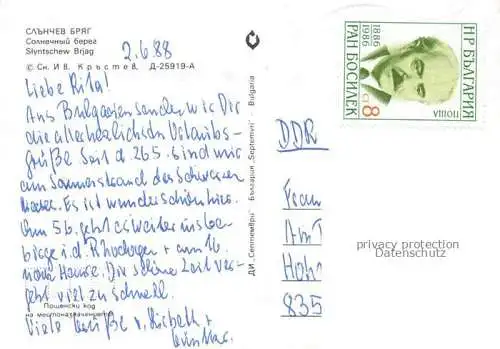 СЛЪНЧЕВ БРЯГ
Солнечный берег
Slyntschew Brjag
© Сн. И в. К р ъ с т е в, Д-25919-А
2.6.88
Liebe Rita!
Aus Bulgarien senden wir Dir
die allerherzlichsten Urlaubs-
grüße. Seit d. 26.5. sind wir
am Sonnenstrand des Schwarzen
Meeres. Es ist wunderschön hier.
Am 5.6. geht es weiter ins
birge i.d. Rhodopen + am 16.
nach Hause. Die schöne Zeit ver-
geht viel zu schnell.
Viele Grüße v. +
Günther
Пощенски код
на местоназначението
ДИ „Септември" България „Septemvri" Bulgaria
1886
1986
РАН БОСИЛЕК
НР БЪЛГАРИЯ
ПОЩА
8 СТ
DDR
Frau
Am T
835
privacy protection
Datenschutz